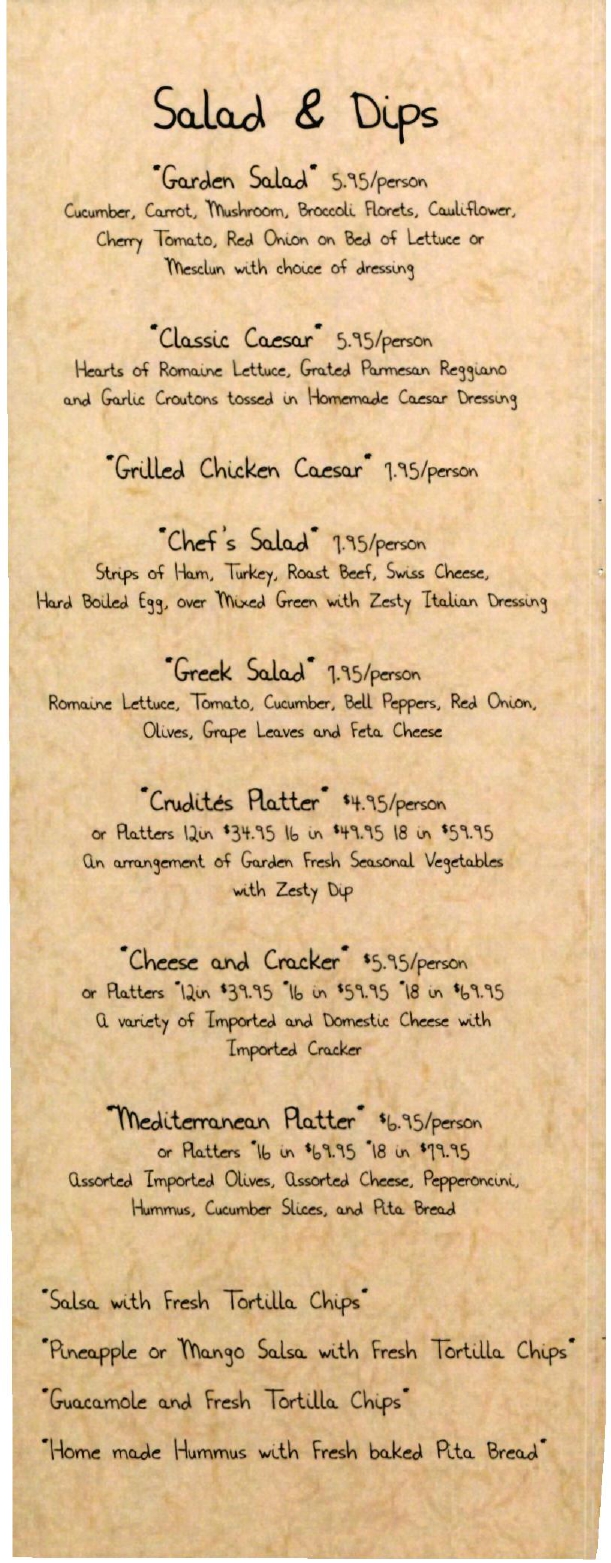 Salad & Dips
"Garden Salad" 5.95/person
Cucumber, Carrot, Mushroom, Broccoli Florets, Cauliflower,
Cherry Tomato, Red Onion on Bed of Lettuce or
Mesclun with choice of dressing
"Classic Caesar" 5.95/person
Hearts of Romaine Lettuce, Grated Parmesan Reggiano
and Garlic Croutons tossed in Homemade Caesar Dressing
"Grilled Chicken Caesar" 7.95/person
"Chef's Salad" 7.95/person
Strips of Ham, Turkey, Roast Beef, Swiss Cheese,
Hard Boiled Egg, over Mixed Green with Zesty Italian Dressing
"Greek Salad" 7.95/person
Romaine Lettuce, Tomato, Cucumber, Bell Peppers, Red Onion,
Olives, Grape Leaves and Feta Cheese
"Crudités Platter" $4.95/person
or Platters 12in $34.95 16 in $49.95 18 in $59.95
An arrangement of Garden Fresh Seasonal Vegetables
with Zesty Dip
"Cheese and Cracker" $5.95/person
or Platters "12in $39.95 "16 in $59.95 "18 in $69.95
A variety of Imported and Domestic Cheese with
Imported Cracker
"Mediterranean Platter" $6.95/person
or Platters "16 in $69.95 "18 in $79.95
Assorted Imported Olives, Assorted Cheese, Pepperoncini,
Hummus, Cucumber Slices, and Pita Bread
"Salsa with Fresh Tortilla Chips"
"Pineapple or Mango Salsa with Fresh Tortilla Chips"
"Guacamole and Fresh Tortilla Chips"
"Home made Hummus with Fresh baked Pita Bread"